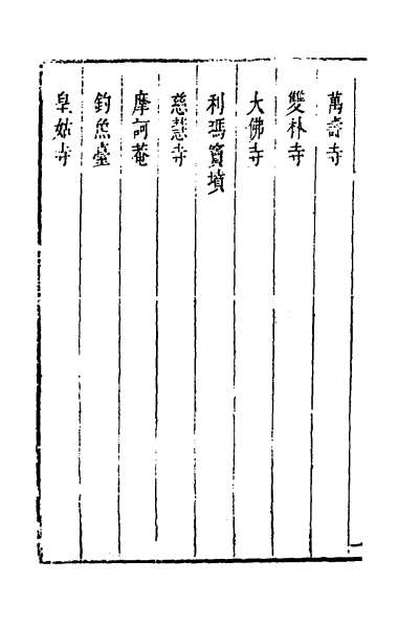 萬壽寺
雙林寺
大佛寺
利瑪竇墳
慈慧寺
摩訶菴
釣魚臺
皇姑寺